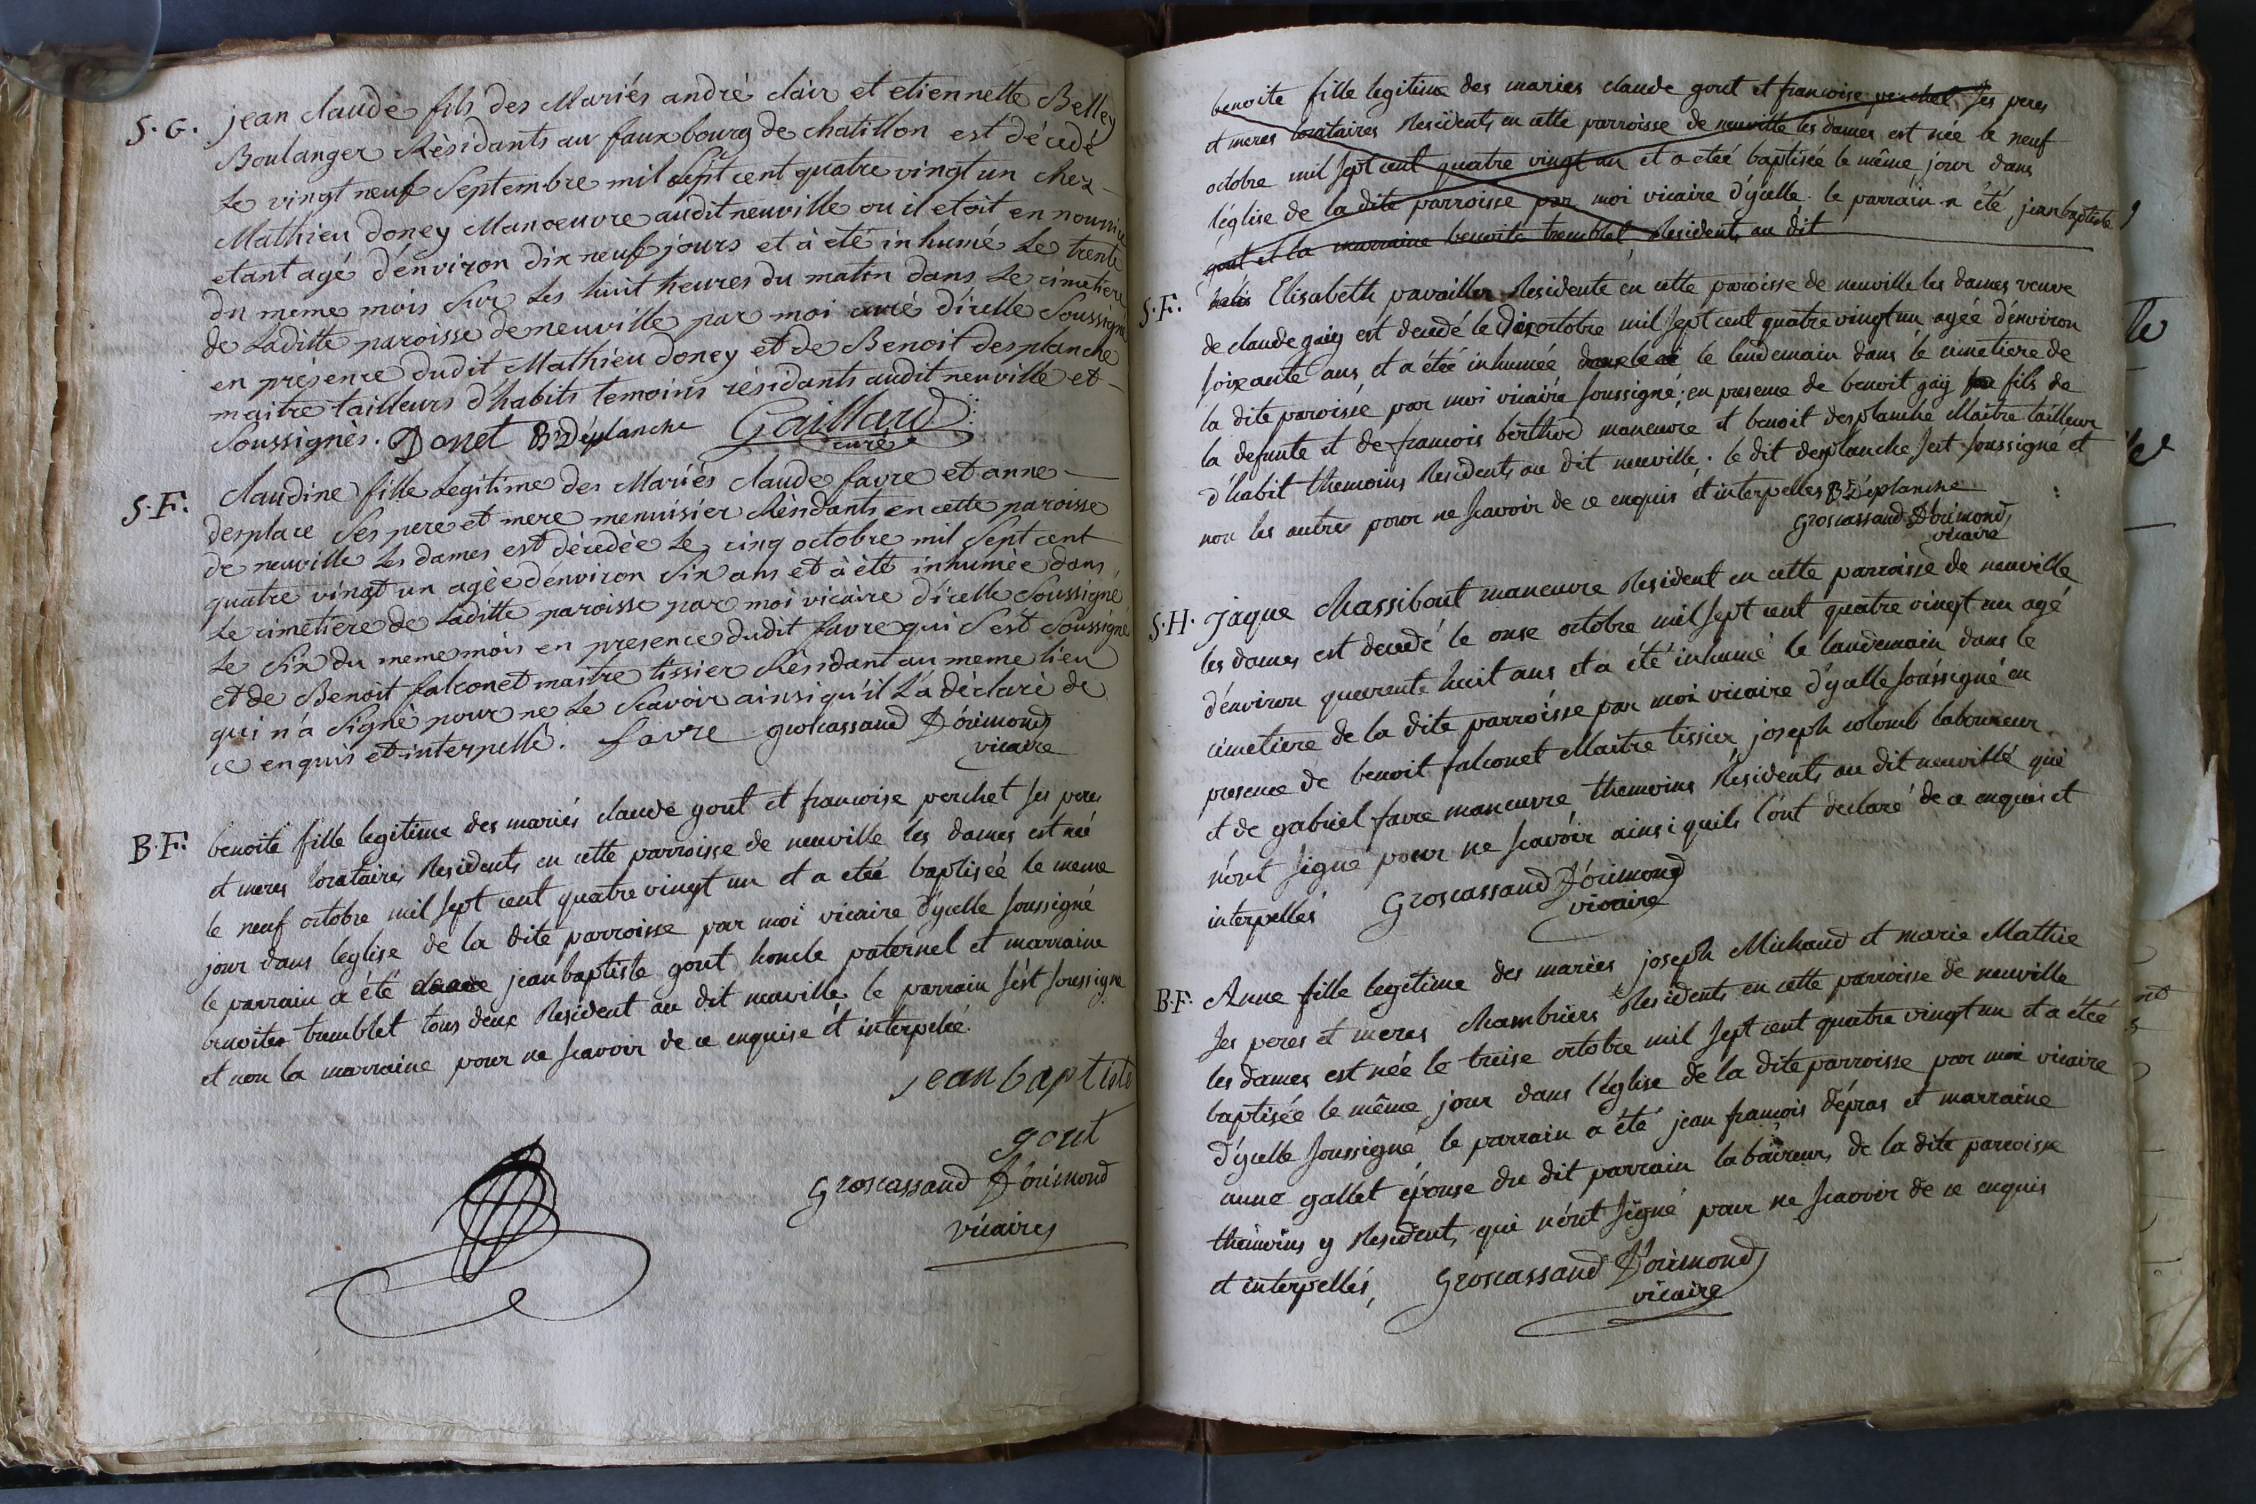 S. G. jean claude fils des Mariés andré clair et etiennette Belley
Boulanger Résidants au fauxbourg de chatillon est décedé
Le vingt neuf Septembre mil Sept cent quatre vingt un chez
Mathieu doney Manoeuvre audit neuville ou il etoit en nourrice
etant agé d'énviron dix neuf jours et à été inhumé Le trente
du meme mois Sur Les huit heures du matin dans Le cimetiere
de Laditte paroisse de neuville par moi curé d'icelle Soussigné
en présence dudit Mathieu doney et de Benoit desplanche
maitre tailleurs d'habits temoins résidants audit neuville et
Soussignés. Donet B Déplanche Gaillard
curé
S. F. claudine fille Legitime des Mariés claude favre et anne
desplace Ses pere et mere menuisier Résidants en cette paroisse
de neuville Les dames est décedée Le cinq octobre mil Sept cent
quatre vingt un agée d'énviron Six ans et à été inhumée dans
Le cimetiere de Laditte paroisse par moi vicaire d'icelle Soussigné
Le Six du meme mois en presence dudit favre qui S'est Soussigné
et de Benoit falconet maitre tissier Résidant au meme lieu
qui n'a Signé pour ne Le Scavoir ainsi qu'il L'a déclaré de
ce enquis et interpellé. favre groscassand Dórimond
vicaire
B. F. benoite fille legitime des mariés claude gout et francoise perchet ses peres
et meres locataires Residents en cette parroisse de neuville les dames est née
le neuf octobre mil sept cent quatre vingt un et a eteé baptiseé le meme
jour dans leglise de la dite parroisse par moi vicaire d'ycelle soussigné
le parrain a été jeanbaptiste gout honcle paternel et marraine
benoite tremblet tous deux Resident au dit neuville le parrain s'est soussigné
et non la marraine pour ne scavoir de ce enquise et interpeleé.
jean baptiste
gout
Groscassand Dórimond
vicaire
benoite fille legitime des maries claude gout et francoise perchet ses peres
et meres locataires Residents en cette parroisse de neuville les dames est née le neuf
octobre mil sept cent quatre vingt un et a eteé baptiseé le même jour dans
l'église de la dite parroisse par moi vicaire d'ycelle. le parrain a été jeanbaptiste
gout et la marraine benoite tremblet Residents au dit
S. F. Elisabeth pavailler Residente en cette paroisse de neuville les dames veuve
de claude gaiy est decedé le dix octobre mil sept cent quatre vingt un agée d'énviron
soixante ans et a étéé inhumée le lendemain dans le cimetiere de
la dite paroisse par moi vicaire soussigné en presence de benoit gaÿ fils de
la defunte et de francois berthod maneuvre et benoit desplanche Maitre tailleur
d'habit themoins Residents au dit neuville. le dit desplanche s'est soussigné et
non les autres pour ne scavoir de ce enquis et interpelles B Déplanche
Groscassand Dórimond
vicaire
S. H. jaque Chassibout maneuvre Resident en cette parroisse de neuville
les dames est decedé le onse octobre mil sept cent quatre vingt un agé
d'énviron quarente huit ans et a été inhumé le landemain dans le
cimetiere de la dite parroisse par moi vicaire d'ycelle soussigné en
presence de benoit falconet Maitre tissier, joseph colomb laboureur
et de gabriel favre maneuvre themoins Residents au dit neuville qui
n'ont signé pour ne scavoir ainsi quils l'ont declaré de ce enquis et
interpellés Groscassand Dórimond
vicaire
B. F. Anne fille legitime des mariés joseph Michaud et marie Mathie
ses peres et meres chambriers Residents en cette parroisse de neuville
les dames est née le treise octobre mil sept cent quatre vingt un et a étéé
baptisée le même jour dans l'église de la dite parroisse par moi vicaire
d'ycelle soussigné le parrain a été jean francois dépras et marraine
anne gallet épouse du dit parrain laboureur de la dite parroisse
themoins y Residents, qui n'ont signé pour ne scavoir de ce enquis
et interpellés, Groscassand Dórimond
vicaire